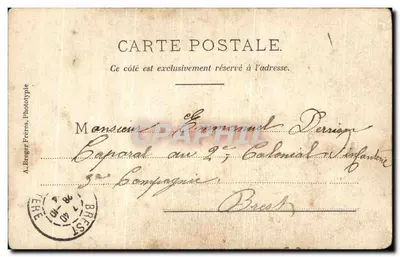 CARTE POSTALE.
Ce côté est exclusivement réservé à l'adresse.
A. Berger Frères, Phototypie
Monsieur Emmanuel
Caporal au 2e Colonial d'infanterie
3e Compagnie
Brest
BREST